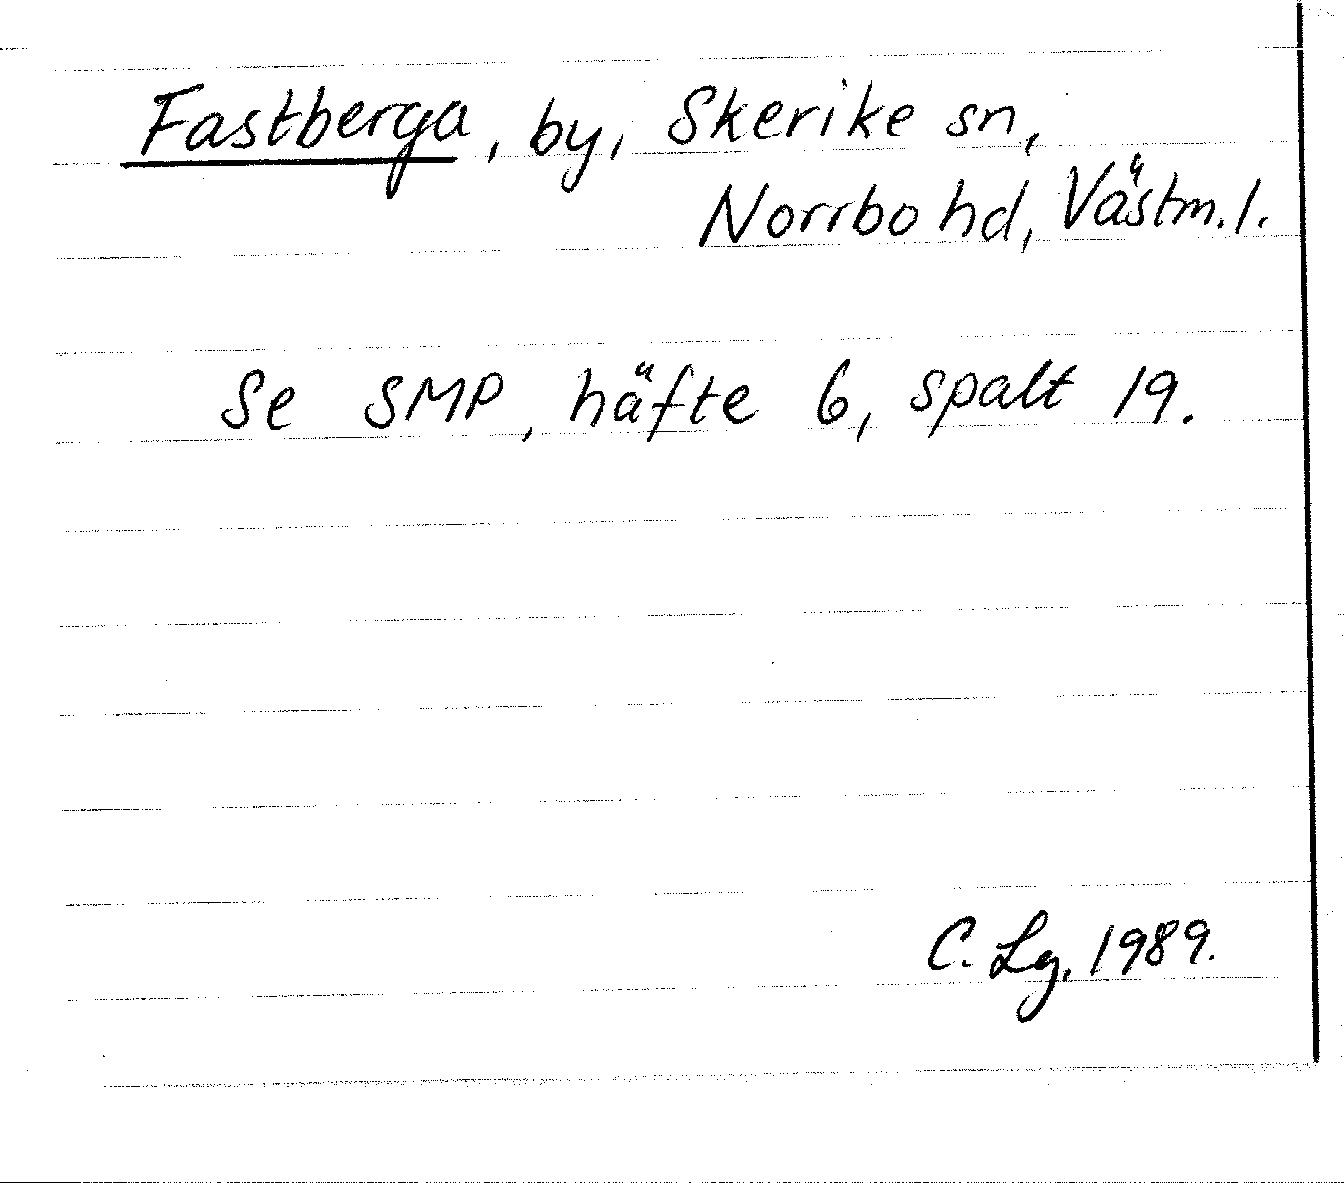 Fastberga, by, Skerike sn,
Norrbo hd, Västm. l.
Se SMP, häfte 6, spalt 19.
C. Lg. 1989.